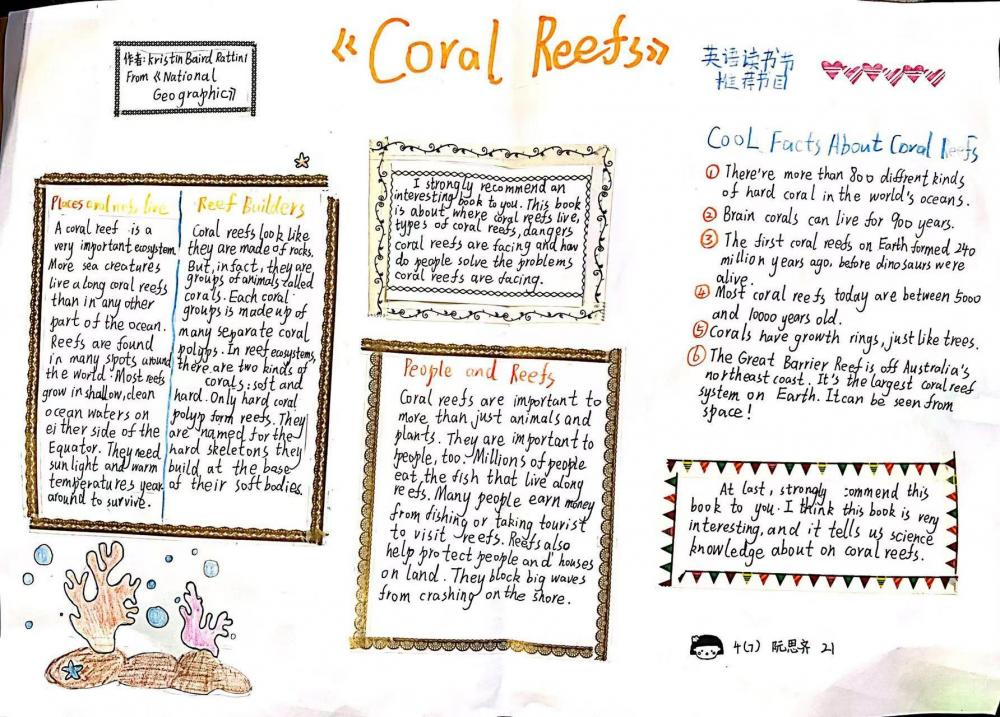 《Coral Reefs》
作者:Kristin Baird Rattini
From 《National
Geographic》
英语读书节
推荐书目
Places coral reefs live
A coral reef is a
very important ecosystem
More sea creatures
live along coral reefs
than in any other
part of the ocean.
Reefs are found
in many spots around
the world. Most reefs
grow in shallow, clean
ocean waters on
either side of the
Equator. They need
sun light and warm
temperatures year
around to survive.
Reef Builders
Coral reefs look like
they are made of rocks.
But, in fact, they are
groups of animals called
corals. Each coral
groups is made up of
many separate coral
polyps. In reef ecosystems,
there are two kinds of
corals: soft and
hard. Only hard coral
polyp form reefs. They
are named for the
hard skeletons they
build at the base
of their soft bodies.
I strongly recommend an
interesting book to you. This book
is about where coral reefs live,
types of coral reefs, dangers
coral reefs are facing and how
do people solve the problems
coral reefs are facing.
People and Reefs
Coral reefs are important to
more than just animals and
plants. They are important to
people, too. Millions of people
eat the fish that live along
reefs. Many people earn money
from dishing or taking tourist
to visit reefs. Reefs also
help protect people and houses
on land. They block big waves
from crashing on the shore.
Cool Facts About Coral Reefs
① There're more than 800 diffrent kinds
of hard coral in the world's oceans.
② Brain corals can live for 900 years.
③ The first coral reefs on Earth formed 240
million years ago, before dinosaurs were
alive.
④ Most coral reefs today are between 5000
and 10000 years old.
⑤ Corals have growth rings, just like trees.
⑥ The Great Barrier Reef is off Australia's
northeast coast. It's the largest coral reef
system on Earth. It can be seen from
space!
At last, strongly :ommend this
book to you. I think this book is very
interesting, and it tells us science
knowledge about on coral reefs.
4(7) 阮思齐 21